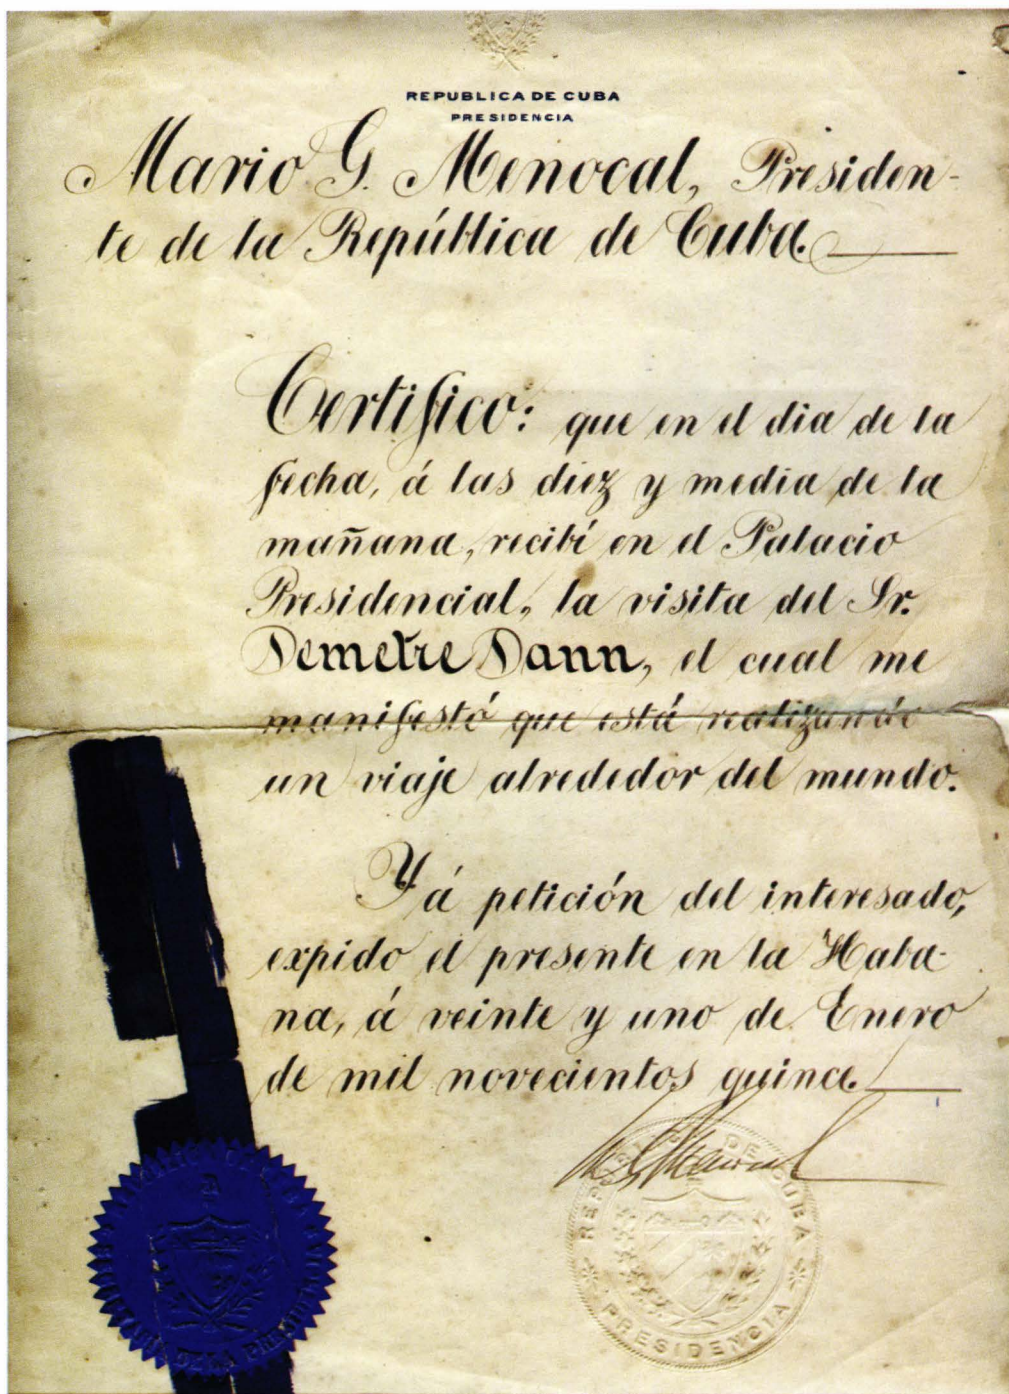 REPUBLICA DE CUBA
PRESIDENCIA
Mario G. Menocal, Presiden-
te de la República de Cuba.
Certifico: que en el dia de la
fecha, á las diez y media de la
mañana, recibí en el Palacio
Presidencial, la visita del Sr.
Demetre Dann, el cual me
manifestó que está realizando
un viaje alrededor del mundo.
Y á petición del interesado,
expido el presente en la Haba-
na, á veinte y uno de Enero
de mil novecientos quince.
M G Menocal
REPUBLICA DE CUBA
PRESIDENCIA